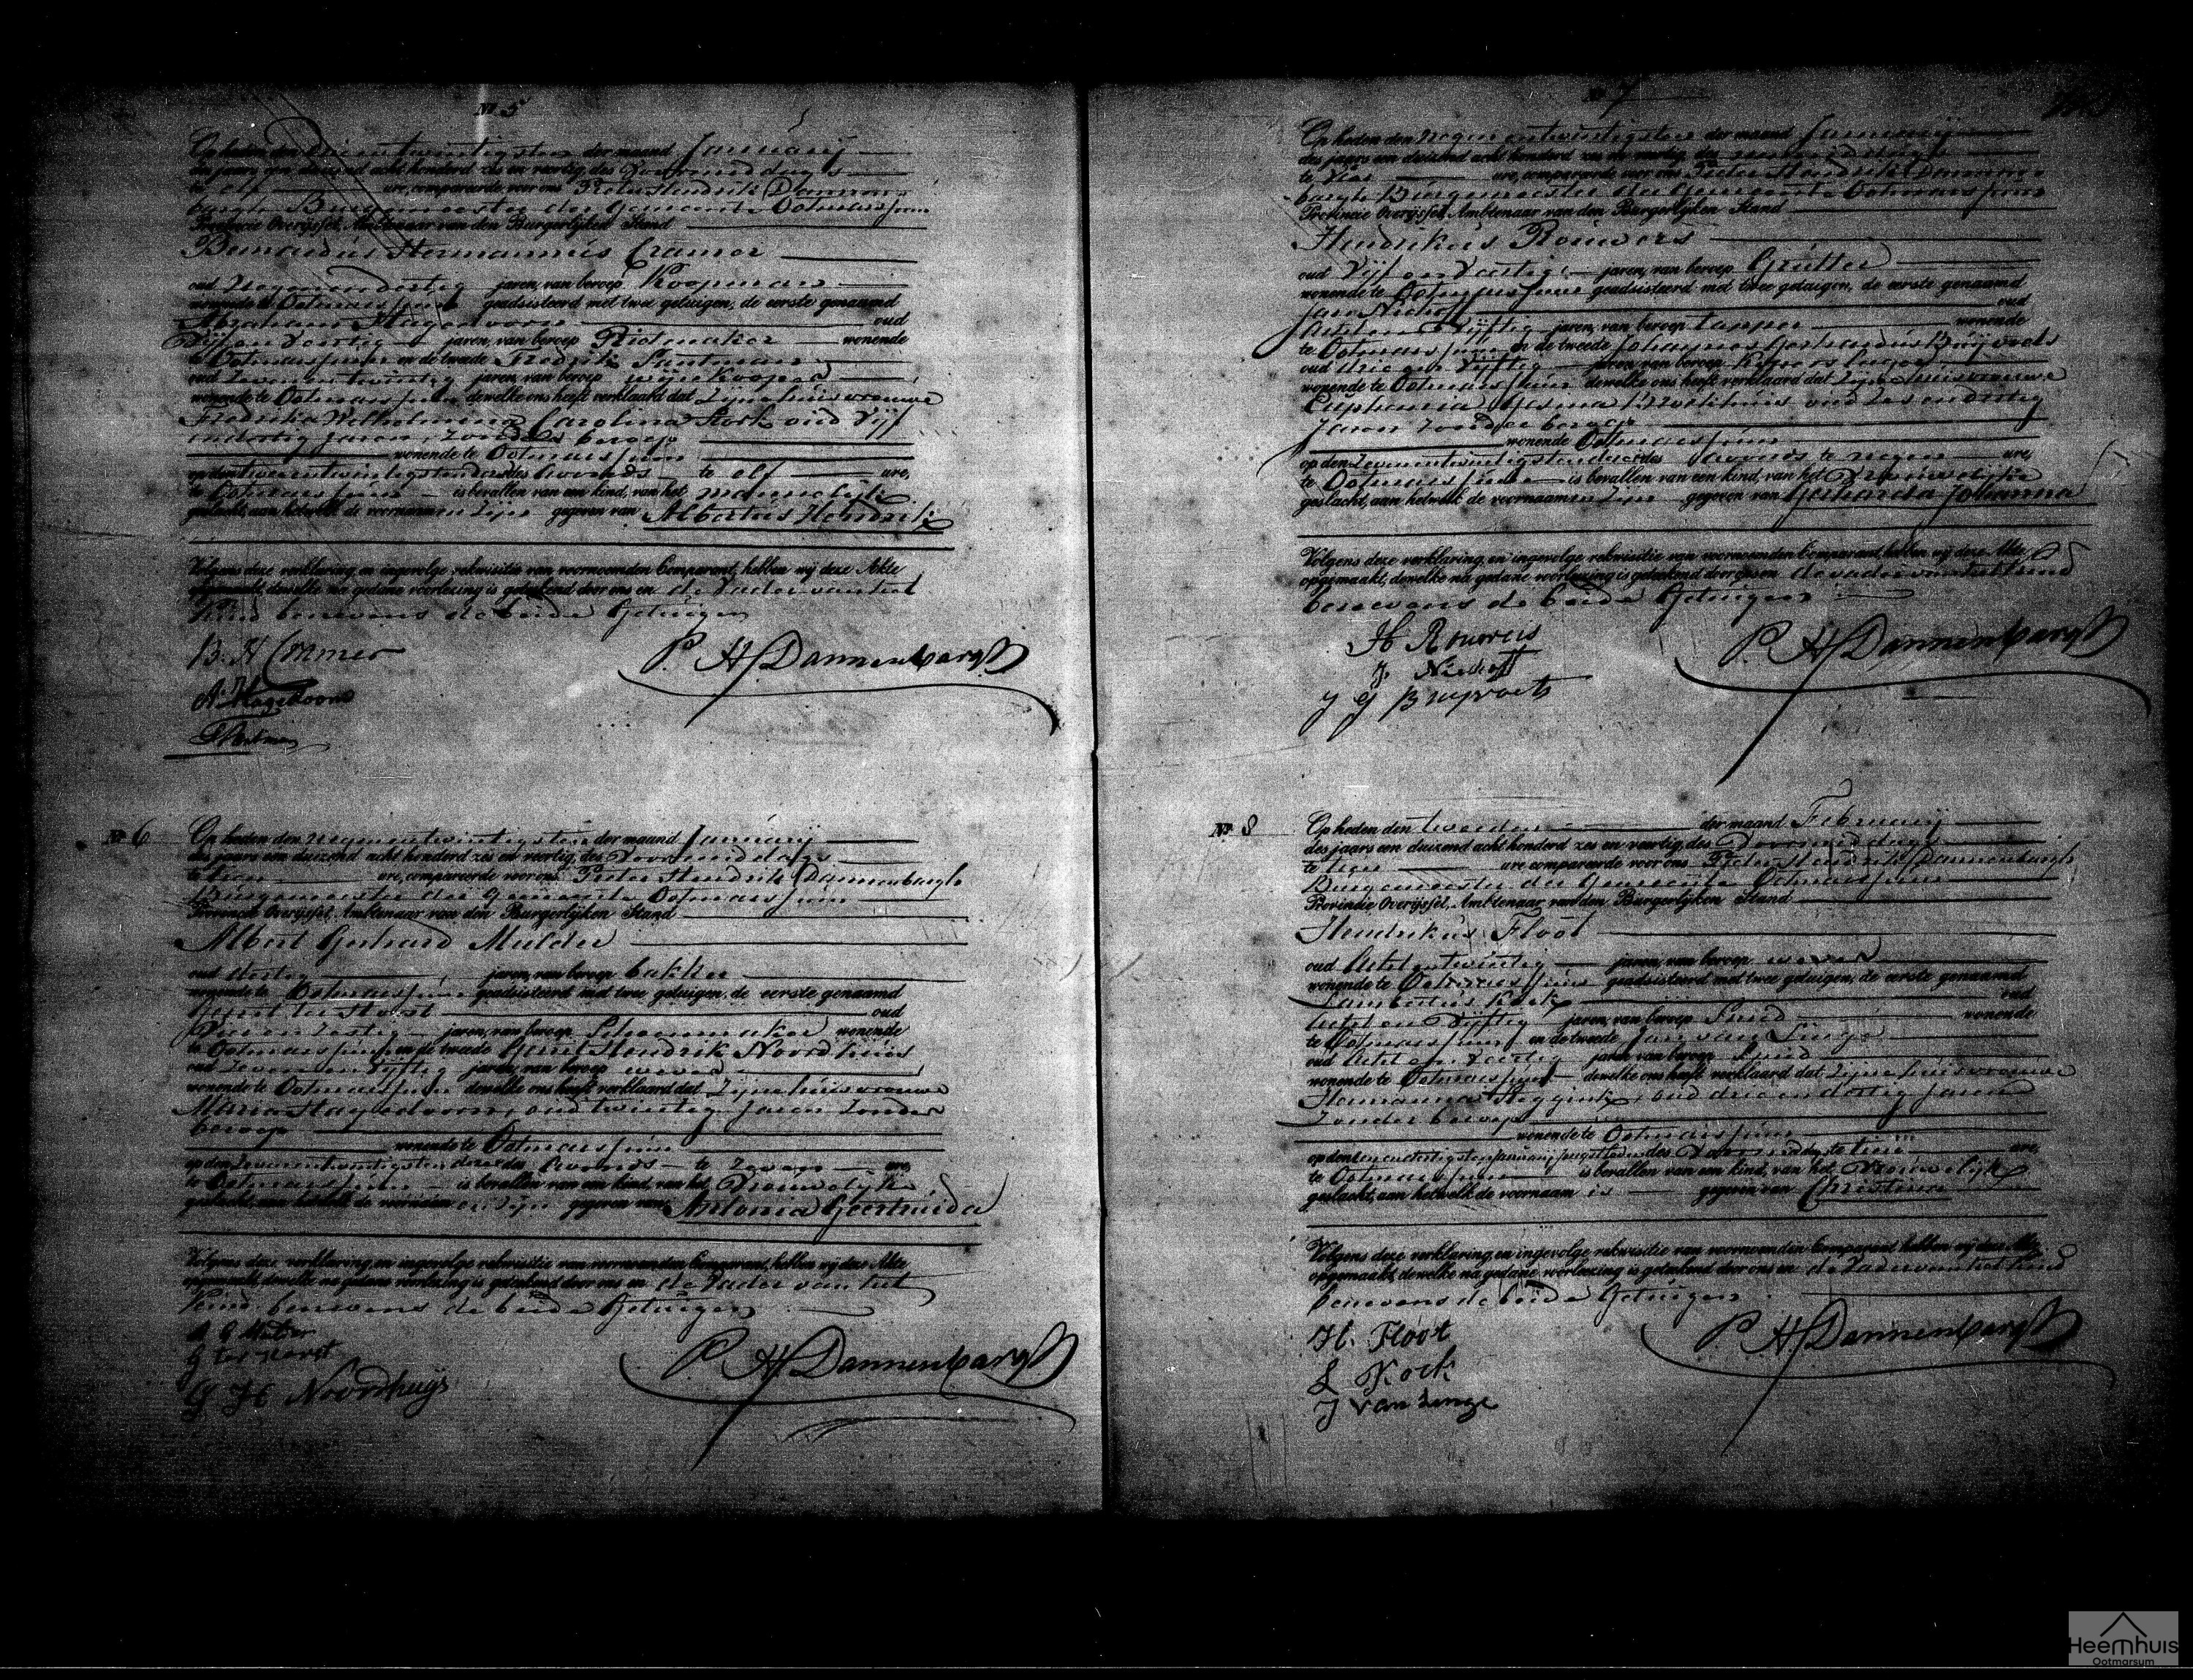 No 5
Op heden den drie en twintigsten der maand Januarij
des jaars een duizend acht honderd zes en veertig, des Voormiddags
te elf ure, compareerde voor ons Pieter Hendrik Dannen-
bargh Burgemeester der Gemeente Ootmarssum
Provincie Overijssel, Ambtenaar van den Burgerlijken Stand
Bernardus Hermannus Cramer
oud Negenendertig jaren, van beroep Koopman
wonende te Ootmarssum geadsisteerd met twee getuigen, de eerste genaamd
Abraham Hagedoorn oud
jaren, van beroep wonende
te Ootmarssum en de tweede Fredrik
oud Zeven en twintig jaren, van beroep wijnkooper
wonende te Ootmarssum dewelke ons heeft verklaard dat Zijne huisvrouwe
Fredrika Wilhelmina Carolina Stork oud Vijf
endertig jaren, zonder beroep
wonende te Ootmarssum
op den tweeentwintigsten dezer des Avonds te elf ure,
te Ootmarssum is bevallen van een kind, van het mannelijk
geslacht, aan hetwelk de voornamen zijn gegeven van Albertus Hendrik
Volgens deze verklaring en ingevolge rekwisitie van voornoemden Comparant, hebben wij deze Akte
opgemaakt, dewelke na gedane voorlezing is geteekend door ons en de Vader van het
Kind benevens de beide Getuigen
B. H Cramer
P. H Dannenbargh
A. Hagedoorn
No 6
Op heden den negenentwintigsten der maand Januarij
des jaars een duizend acht honderd zes en veertig, des Voormiddags
te tien ure, compareerde voor ons Pieter Hendrik Dannenbargh
Burgemeester der Gemeente Ootmarssum
Provincie Overijssel, Ambtenaar van den Burgerlijken Stand
Albert Gerhard Mulder
oud dertig jaren, van beroep bakker
wonende te Ootmarssum geadsisteerd met twee getuigen, de eerste genaamd
Gerrit ter Horst oud
en Zestig jaren, van beroep Schoenmaker wonende
te Ootmarssum en de tweede Gerrit Hendrik Noordhuis
oud Zeven en Vijftig jaren, van beroep wever
wonende te Ootmarssum dewelke ons heeft verklaard dat Zijne huisvrouwe
Maria Hagedoorn, oud twintig Jaren Zonder
beroep
wonende te Ootmarssum
op den Zevenentwintigsten dezer des Avonds te Zeven ure,
te Ootmarssum is bevallen van een kind, van het Vrouwelijke
geslacht, aan hetwelk de voornamen zijn gegeven van Antonia Geertruida
Volgens deze verklaring en ingevolge rekwisitie van voornoemden Comparant, hebben wij deze Akte
opgemaakt, dewelke na gedane voorlezing is geteekend door ons en de Vader van het
Kind benevens de beide Getuigen
A G Mulder
G ter Horst
P. H Dannenbargh
G H Noordhuys
No 7
Op heden den negen entwintigsten der maand Januarij
des jaars een duizend acht honderd zes en veertig, des
te Vier ure, compareerde voor ons Pieter Hendrik Dannen-
bargh Burgemeester der Gemeente Ootmarssum
Provincie Overijssel, Ambtenaar van den Burgerlijken Stand
Hendrikus Rouwers
oud Vijf en Veertig jaren, van beroep Grutter
wonende te Ootmarssum geadsisteerd met twee getuigen, de eerste genaamd
Jan Niehoff oud
Acht en Vijftig jaren, van beroep tapper wonende
te Ootmarssum en de tweede Johannes Gerhardus Bruijvoets
oud drie en Vijftig jaren, van beroep
wonende te Ootmarssum dewelke ons heeft verklaard dat Zijne huisvrouwe
Euphemia Gesina oud Zes endertig
Jaren zonder beroep
wonende Ootmarssum
op den Zevenentwintigsten dezer des Avonds te negen ure,
te Ootmarssum is bevallen van een kind, van het Vrouwelijke
geslacht, aan hetwelk de voornamen Zijn gegeven van Gerharda Johanna
Volgens deze verklaring en ingevolge rekwisitie van voornoemden Comparant, hebben wij deze Akte
opgemaakt, dewelke na gedane voorlezing is geteekend door ons en de vader van het kind
benevens de beide Getuigen
H Rouwers
P. H Dannenbargh
J. Niehoff
J G Bruyvoets
No 8
Op heden den tweeden der maand Februarij
des jaars een duizend acht honderd zes en veertig, des Voormiddags
te tien ure compareerde voor ons Pieter Hendrik Dannenbargh
Burgemeester der Gemeente Ootmarssum
Provincie Overijssel, Ambtenaar van den Burgerlijken Stand
Hendrikus Floot
oud Achtentwintig jaren, van beroep wever
wonende te Ootmarssum geadsisteerd met twee getuigen, de eerste genaamd
Lambertus Kock oud
Acht en Vijftig jaren, van beroep Smid wonende
te Ootmarssum en de tweede Jan van Linge
oud Acht en Veertig jaren van beroep Smid
wonende te Ootmarssum dewelke ons heeft verklaard dat Zijne huisvrouwe
Hermanna oud drie en dertig Jaren
Zonder beroep
wonende te Ootmarssum
op den eenendertigsten Januarij jongstleden des Voormiddags te tien ure,
te Ootmarssum is bevallen van een kind, van het Vrouwelijke
geslacht, aan hetwelk de voornaam is gegeven van Christina
Volgens deze verklaring en ingevolge rekwisitie van voornoemden Comparant hebben wij deze Akte
opgemaakt, dewelke na gedane voorlezing is geteekend door ons en de Vader van het Kind
benevens de beide Getuigen
H. Floot
P. H Dannenbargh
L Kock
J van Linge
Heemhuis
Ootmarsum